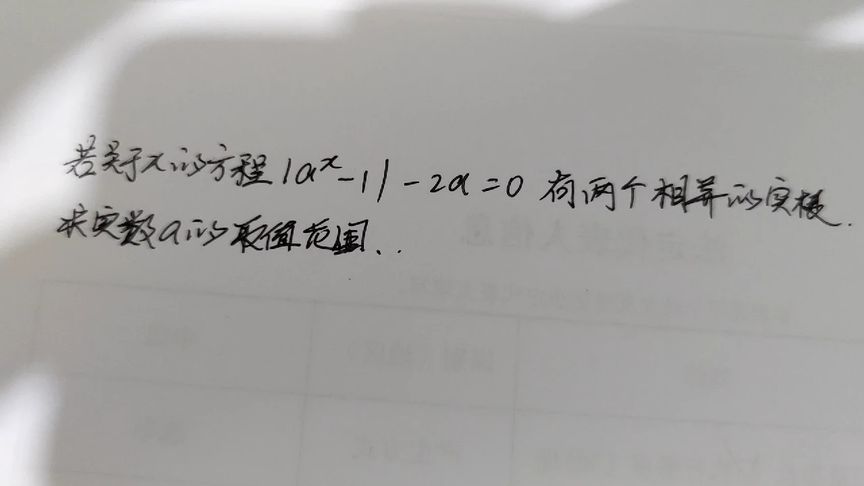 若关于x的方程|a^x-1|-2a=0有两个相异的实根.
求实数a的取值范围..